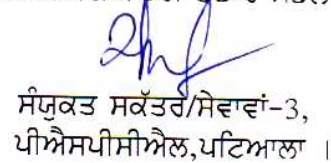 ਸੰਯੁਕਤ ਸਕੱਤਰ/ਸੇਵਾਵਾਂ-3,
ਪੀਐਸਪੀਸੀਐਲ,ਪਟਿਆਲਾ ।